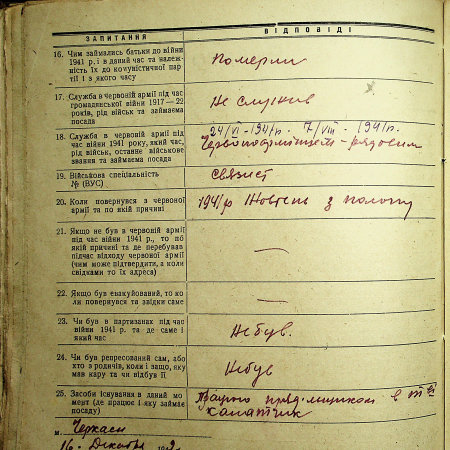 ЗАПИТАННЯ
ВІДПОВІДІ
16. Чим займались батьки до війни
1941 р. і в даний час та належ-
ність їх до комуністичної пар-
тії і з якого часу
Померли
17. Служба в червоній армії під час
громадянської війни 1917—22
років, рід військ та займаєма
посада
Не служив
18. Служба в червоній армії під
час війни 1941 року, який час,
рід військ, останнє військове
звання та займаєма посада
24/VI - 1941р. - 7/VIII - 1941р.
Червоноармійцем - рядовим
19. Військова спеціальність
№ (ВУС)
связист
20. Коли повернувся з червоної
армії та по якій причині
1941р Жовтень з полону
21. Якщо не був в червоній армії
під час війни 1941 р., то по
якій причині та де перебував
підчас відходу червоної армії
(чим може підтвердити, а коли
свідками то їх адреса)
—
22. Якщо був евакуйований, то ко-
ли повернувся та звідки саме
—
23. Чи був в партизанах під час
війни 1941 р. та де саме і
який час
Не був.
24. Чи був репресований сам, або
хто з родичів, коли і защо, яку
мав кару та чи відбув її
Не був
25. Засоби існування в даний мо-
мент (де працює і яку займає
посаду)
Працюю в
м. Черкаси
16. Декабря 194